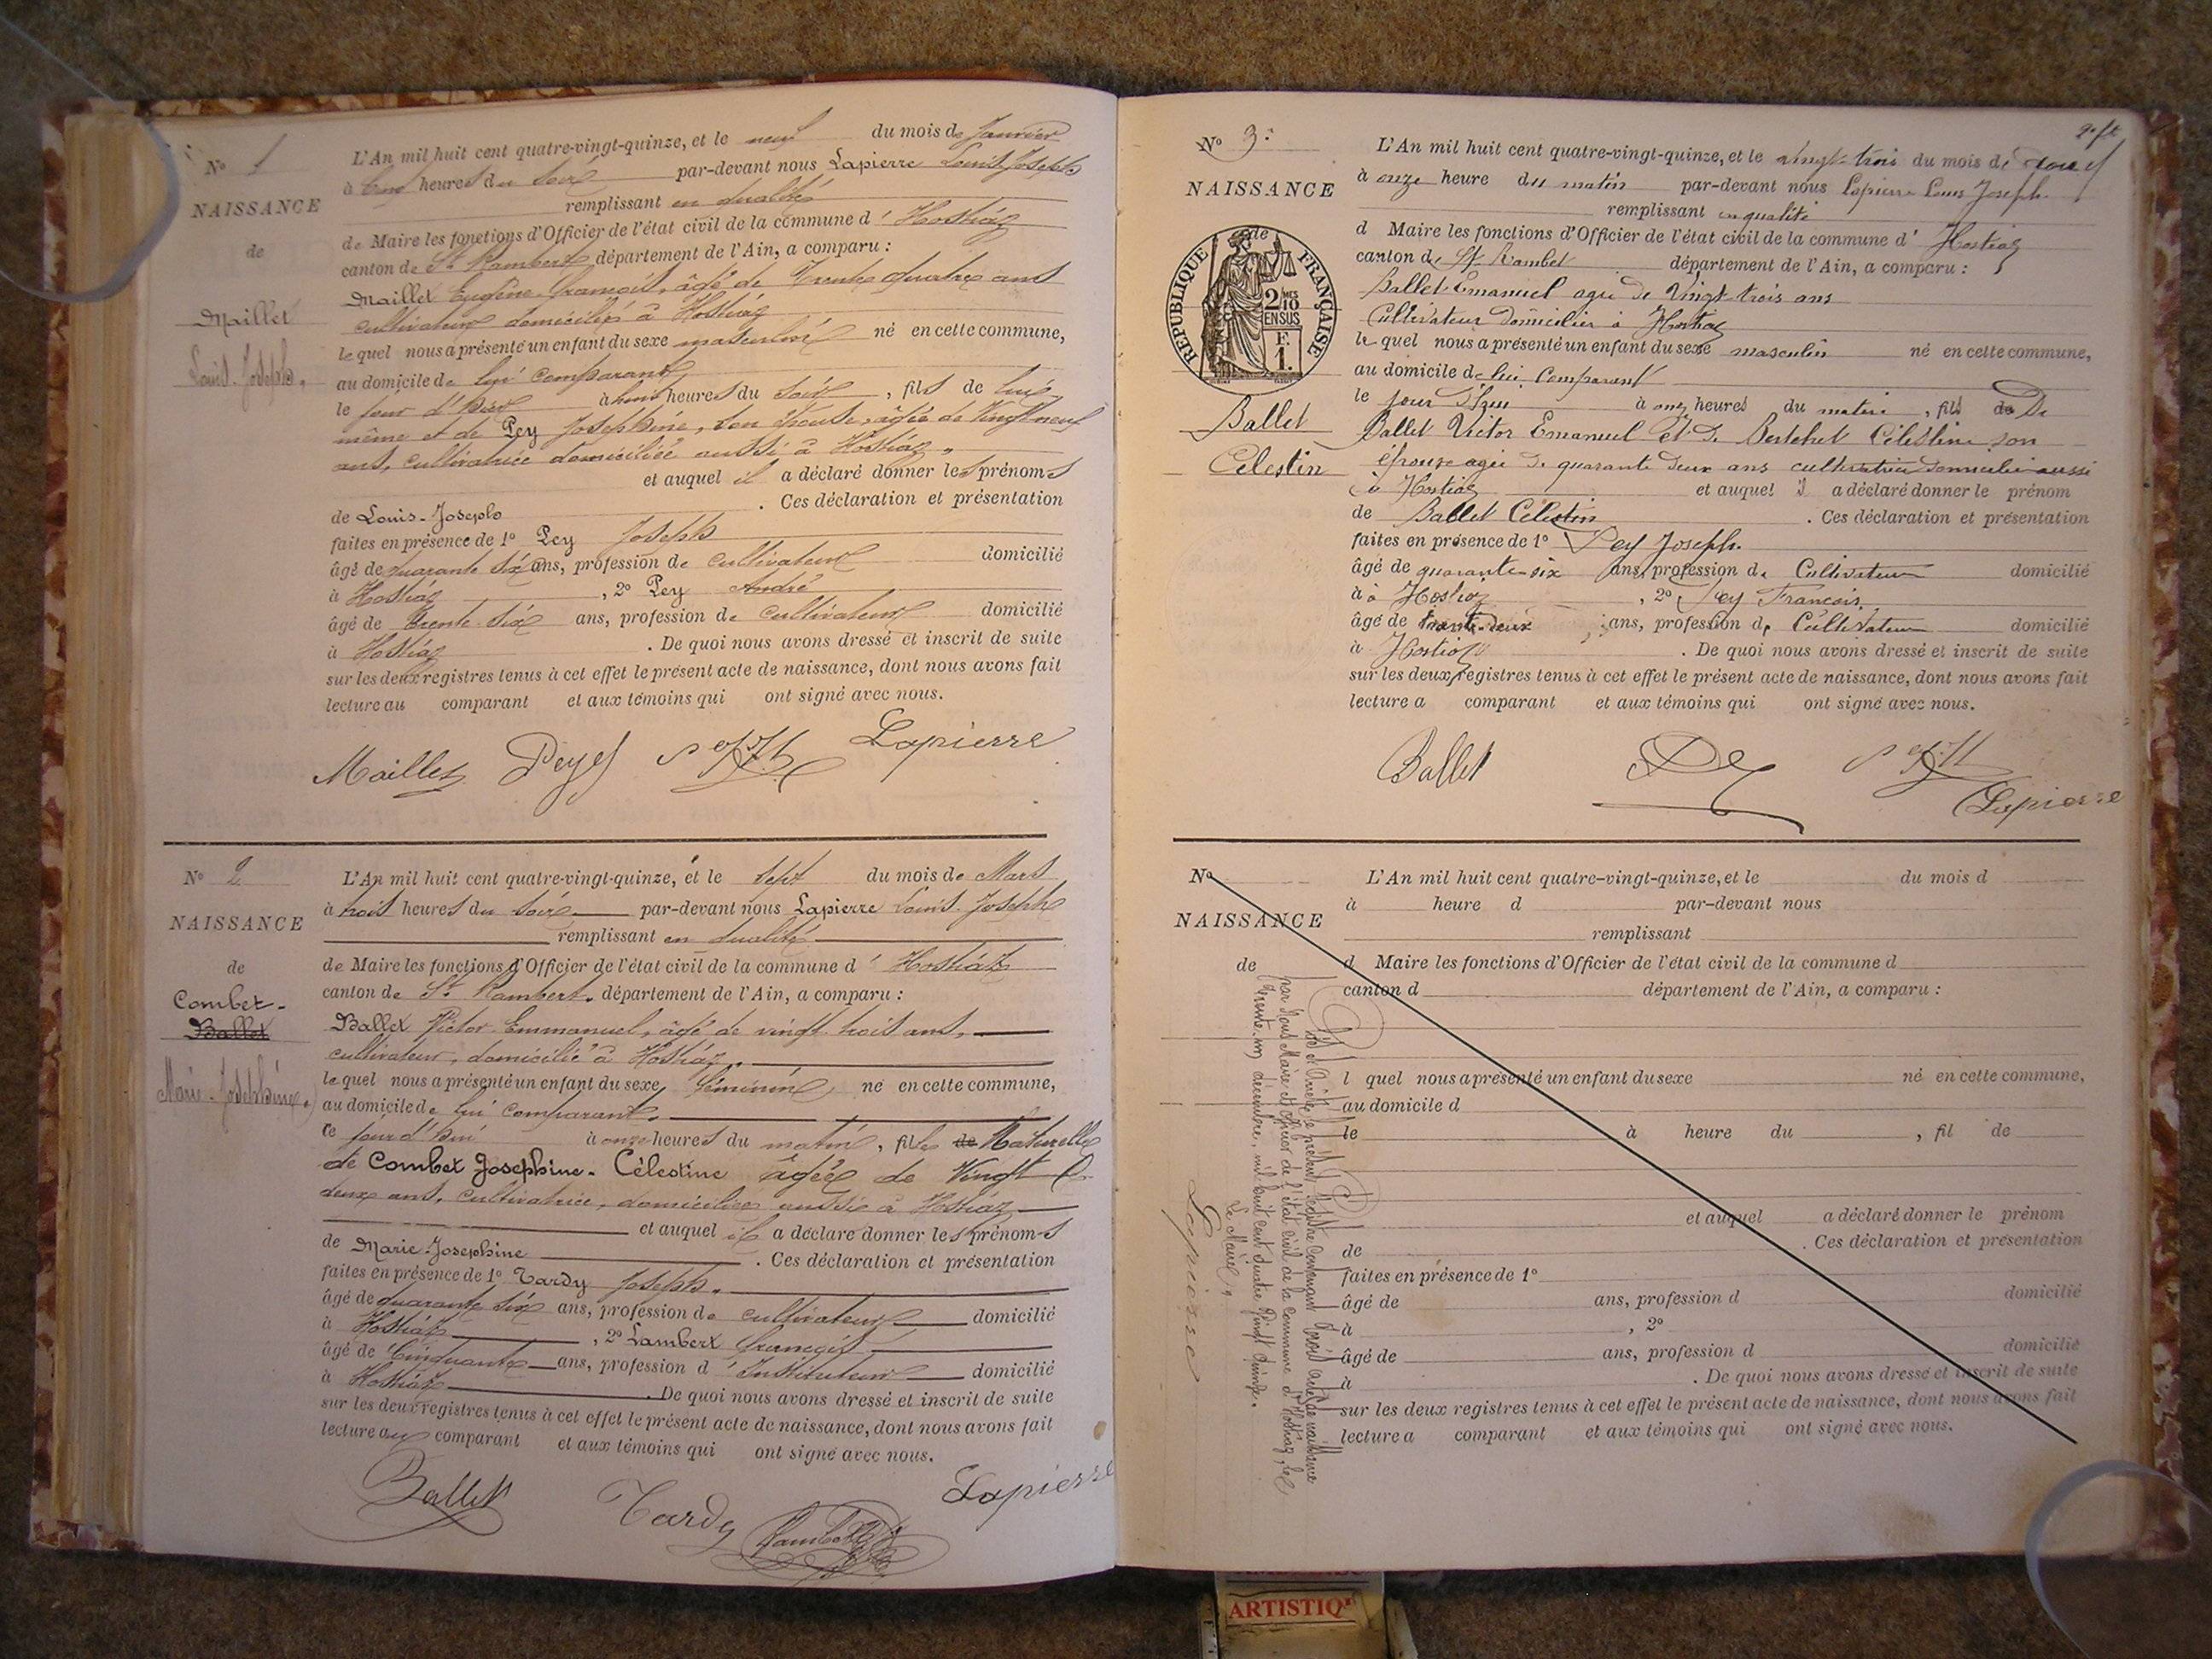 No 1
NAISSANCE
de
Maillet
Louis-Joseph.
L'An mil huit cent quatre-vingt-quinze, et le neuf du mois de Janvier
à heures du soir par-devant nous Lapierre Louis Joseph
remplissant en qualité
de Maire les fonctions d'Officier de l'état civil de la commune d' Hostiaz
canton de St Rambert département de l'Ain, a comparu :
Maillet Eugène François, âgé de trente quatre ans
cultivateur domicilié à Hostiaz
le quel nous a présenté un enfant du sexe masculin né en cette commune,
au domicile de lui comparant
le jour d'hier à heures du soir, fils de lui
même et de Pey Joséphine, son épouse, âgée de vingt neuf
ans, cultivatrice domiciliée aussi à Hostiaz,
et auquel il a déclaré donner les prénoms
de Louis-Joseph. Ces déclaration et présentation
faites en présence de 1º Pey Joseph
âgé de quarante six ans, profession de cultivateur domicilié
à Hostiaz, 2º Pey André
âgé de trente-six ans, profession de cultivateur domicilié
à Hostiaz. De quoi nous avons dressé et inscrit de suite
sur les deux registres tenus à cet effet le présent acte de naissance, dont nous avons fait
lecture au comparant et aux témoins qui ont signé avec nous.
Maillet Pey Lapierre
No 2
NAISSANCE
de
Combet-
Ballet
Marie-Joséphine.
L'An mil huit cent quatre-vingt-quinze, et le sept du mois de Mars
à trois heures du soir par-devant nous Lapierre Louis Joseph
remplissant en qualité
de Maire les fonctions d'Officier de l'état civil de la commune d' Hostiaz
canton de St Rambert, département de l'Ain, a comparu :
Ballet Victor Emmanuel, âgé de vingt trois ans,
cultivateur, domicilié à Hostiaz,
le quel nous a présenté un enfant du sexe féminin, né en cette commune,
au domicile de lui comparant,
ce jour d'hui à onze heures du matin, fille de Naturelle
de Combet Joséphine-Célestine âgée de Vingt
deux ans, cultivatrice, domiciliée aussi à Hostiaz
et auquel il a déclaré donner les prénoms
de Marie-Joséphine. Ces déclaration et présentation
faites en présence de 1º Tardy Joseph.
âgé de quarante six ans, profession de cultivateur domicilié
à Hostiaz, 2º Lambert François
âgé de Cinquante ans, profession d'Instituteur domicilié
à Hostiaz. De quoi nous avons dressé et inscrit de suite
sur les deux registres tenus à cet effet le présent acte de naissance, dont nous avons fait
lecture au comparant et aux témoins qui ont signé avec nous.
Ballet Tardy Lambert Lapierre
No 3
NAISSANCE
de
RÉPUBLIQUE FRANÇAISE
2/10 MES
EN SUS
F.
1.
Ballet
Célestin
L'An mil huit cent quatre-vingt-quinze, et le vingt-trois du mois de
à onze heure du matin par-devant nous Lapierre Louis Joseph.
remplissant en qualité
d Maire les fonctions d'Officier de l'état civil de la commune d' Hostiaz
canton de St Rambet département de l'Ain, a comparu :
Ballet Emanuel agé de Vingt-trois ans
Cultivateur Domicilier à Hostiaz
le quel nous a présenté un enfant du sexe masculin né en cette commune,
au domicile de lui Comparant
le jour d'hui à onze heures du matin, fils de De
Ballet Victor Emanuel et de Bertchet Célestine son
épouse agée de quarante Deux ans cultivatrice Domicilié aussi
à Hostiaz et auquel il a déclaré donner le prénom
de Ballet Célestin. Ces déclaration et présentation
faites en présence de 1º Pey Joseph.
âgé de quarante-six ans, profession de Cultivateur domicilié
à à Hostiaz, 2º Pey François.
âgé de trente-deux ans, profession de Cultivateur domicilié
à Hostiaz. De quoi nous avons dressé et inscrit de suite
sur les deux registres tenus à cet effet le présent acte de naissance, dont nous avons fait
lecture a comparant et aux témoins qui ont signé avec nous.
Ballet Lapierre
No
NAISSANCE
de
L'An mil huit cent quatre-vingt-quinze, et le du mois d
à heure d par-devant nous
remplissant
d Maire les fonctions d'Officier de l'état civil de la commune d
canton d département de l'Ain, a comparu :
l quel nous a présenté un enfant du sexe né en cette commune,
au domicile d
le à heure du, fil de
et auquel a déclaré donner le prénom
de. Ces déclaration et présentation
faites en présence de 1º
âgé de ans, profession d domicilié
à, 2º
âgé de ans, profession d domicilié
à. De quoi nous avons dressé et inscrit de suite
sur les deux registres tenus à cet effet le présent acte de naissance, dont nous avons fait
lecture a comparant et aux témoins qui ont signé avec nous.
Clos et Arrêté le présent registre contenant trois actes de naissance
par Nous Maire et officier de l'état civil de la commune d'Hostiaz, le
trente-un décembre mil huit cent quatre vingt quinze.
Le Maire,
Lapierre
ARTISTIQ